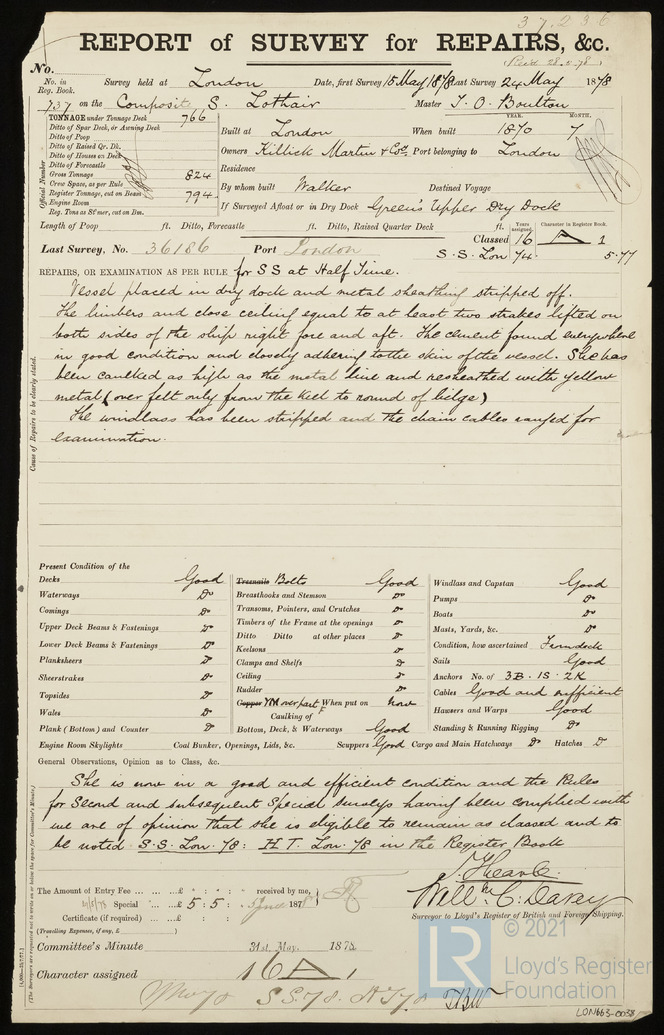 37236
REPORT of SURVEY for REPAIRS, &c.
(Recd 28.5.78)
No.
No. in Reg. Book. Survey held at London Date, first Survey 15 May 1878 Last Survey 24 May 1878
737 on the Composite S. Lothair Master T. O. Boulton
TONNAGE under Tonnage Deck 766
Ditto of Spar Deck, or Awning Deck
Ditto of Poop
Ditto of Raised Qr. Dk.
Ditto of Houses on Deck
Ditto of Forecastle
Gross Tonnage 824
Crew Space, as per Rule
Register Tonnage, cut on Beam 794
Engine Room
Reg. Tons as Stmer, cut on Bm.
Official Number
YEAR. MONTH.
Built at London When built 1870 7
Owners Killick Martin & Co. Port belonging to London
Residence
By whom built Walker Destined Voyage
If Surveyed Afloat or in Dry Dock Green's Upper Dry Dock
Length of Poop ft. Ditto, Forecastle ft. Ditto, Raised Quarter Deck ft.
Years assigned Character in Register Book.
Classed 16 A 1
Last Survey, No. 36186 Port London S.S. Lon 74. 5.77
REPAIRS, OR EXAMINATION AS PER RULE for SS at Half Time.
Vessel placed in dry dock and metal sheathing stripped off.
The limbers and close ceiling equal to at least two strakes lifted on
both sides of the ship right fore and aft. The cement found everywhere
in good condition and closely adhering to the skin of the vessel. She has
been caulked as high as the metal line and resheathed with yellow
metal (over felt only from the keel to round of bilge)
The windlass has been stripped and the chain cables ranged for
examination.
Cause of Repairs to be clearly stated.
Present Condition of the
Decks Good
Waterways Do
Comings Do
Upper Deck Beams & Fastenings Do
Lower Deck Beams & Fastenings Do
Planksheers Do
Sheerstrakes Do
Topsides Do
Wales Do
Plank (Bottom) and Counter Do
Treenails Bolts Good
Breasthooks and Stemson Do
Transoms, Pointers, and Crutches Do
Timbers of the Frame at the openings Do
Ditto Ditto at other places Do
Keelsons Do
Clamps and Shelfs Do
Ceiling Do
Rudder Do
Copper YM over part F When put on now
Caulking of
Bottom, Deck, & Waterways Good
Windlass and Capstan Good
Pumps Do
Boats Do
Masts, Yards, &c. Do
Condition, how ascertained From deck
Sails Good
Anchors No. of 3B. 1S. 2K
Cables Good and sufficient
Hawsers and Warps Good
Standing & Running Rigging Do
Engine Room Skylights Coal Bunker, Openings, Lids, &c. Scuppers Good Cargo and Main Hatchways Do Hatches Do
General Observations, Opinion as to Class, &c.
She is now in a good and efficient condition and the Rules
for Second and subsequent Special Surveys having been complied with
we are of opinion that she is eligible to remain as classed and to
be noted S.S. Lon. 78: H T. Lon. 78 in the Register Book
The Amount of Entry Fee ... ...£ : : : received by me,
Special ... ...£ 5 : 5 : 187
Certificate (if required) ... ...£ : :
(Travelling Expenses, if any, £ )
Will. C. Davey
Surveyor to Lloyd's Register of British and Foreign Shipping.
Committee's Minute 31st. May. 1878
Character assigned 16 A 1
S.S. 78. H.T. 78
(The Surveyors are requested not to write on or below the space for Committee's Minute.)
© 2021
LR
Lloyd's Register
Foundation
LON663-0038